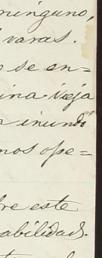 ninguno,
varas.
se en-
ina vieja
a inundi
nos ope-
re este
abilidad.